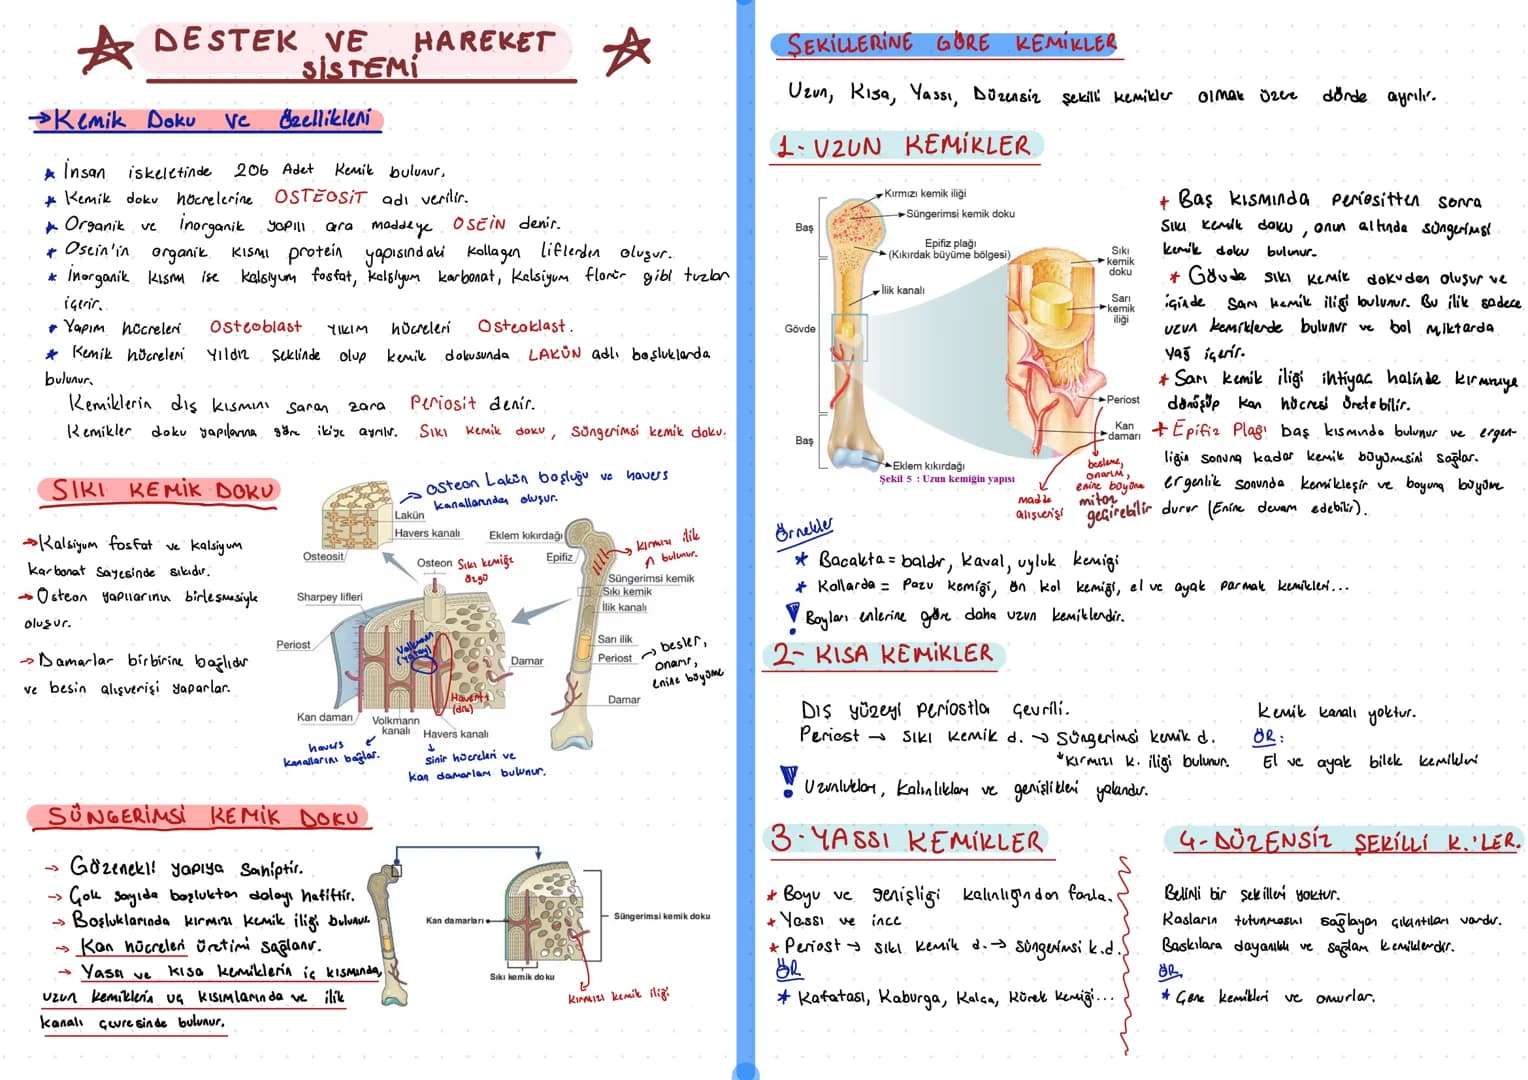 DESTEK VE HAREKET
SİSTEMİ
→Kemik Doku ve Özellikleri
İnsan iskeletinde 206 Adet Kemik bulunur.
Kemik doku hücrelerine OSTEOSİT adı verilir.
Organik ve İnorganik yapılı ara maddeye OSEİN denir.
Osein'in organik kısmı protein yapısındaki kollagen liflerden oluşur.
İnorganik kısmı ise kalsiyum fosfat, kalsiyum karbonat, kalsiyum florür gibi tuzları
içerir.
Yapım hücreleri Osteoblast yıkım hücreleri Osteoklast.
Kemik hücreleri yıldız şeklinde olup kemik dokusunda LAKÜN adlı boşluklarda
bulunur.
Kemiklerin dış kısmını saran zara Periosit denir.
Kemikler doku yapılarına göre ikiye ayrılır. Sıkı kemik doku, Süngerimsi kemik doku.
SIKI KEMİK DOKU
→Kalsiyum fosfat ve kalsiyum
karbonat sayesinde sıkıdır.
→Osteon yapılarının birleşmesiyle
oluşur.
→Damarlar birbirine bağlıdır
ve besin alışverişi yaparlar.
→ Osteon Lakün boşluğu ve havers
kanallarından oluşur.
Lakün
Havers kanalı
Osteosit
Osteon Sıkı kemiğe
özgü
Eklem kıkırdağı
Epifiz
kırmızı ilik
bulunur.
Süngerimsi kemik
Sıkı kemik
İlik kanalı
Sharpey lifleri
Periost
Volkmann
(yatay)
Havers
(dik)
Damar
Sarı ilik
Periost
→ besler,
onarır,
enine büyüme
Damar
Kan damarı
Volkmann
kanalı
Havers kanalı
havers
kanallarını bağlar.
Sinir hücreleri ve
kan damarları bulunur.
SÜNGERİMSİ KEMİK DOKU
→ Gözenekli yapıya sahiptir.
→ Çok sayıda boşluktan dolayı hafiftir.
→ Boşluklarında kırmızı kemik iliği bulunur.
→ Kan hücreleri üretimi sağlanır.
→ Yassı ve kısa kemiklerin iç kısmında,
uzun kemiklerin uç kısımlarında ve ilik
kanalı çevresinde bulunur.
Kan damarları
Süngerimsi kemik doku
Sıkı kemik doku
kırmızı kemik iliği
ŞEKİLLERİNE GÖRE KEMİKLER
Uzun, Kısa, Yassı, Düzensiz şekilli kemikler olmak üzere dörde ayrılır.
1- UZUN KEMİKLER
Kırmızı kemik iliği
Süngerimsi kemik doku
Baş
Epifiz plağı
(Kıkırdak büyüme bölgesi)
İlik kanalı
Gövde
Baş
Eklem kıkırdağı
Şekil 5 : Uzun kemiğin yapısı
Sıkı
kemik
doku
Sarı
kemik
iliği
Periost
Kan
damarı
madde
alışverişi
besleme,
onarım,
enine büyüme
mitoz
geçirebilir
+ Baş kısmında periosittten sonra
sıkı kemik doku, onun altında süngerimsi
kemik doku bulunur.
* Gövde sıkı kemik dokudan oluşur ve
içinde sarı kemik iliği bulunur. Bu ilik sadece
uzun kemiklerde bulunur ve bol miktarda
yağ içerir.
* Sarı kemik iliği ihtiyaç halinde kırmızıya
dönüşüp kan hücresi üretebilir.
+ Epifiz Plağı baş kısmında bulunur ve ergen-
liğin sonuna kadar kemik büyümesini sağlar.
ergenlik sonunda kemikleşir ve boyuna büyüme
durur (Enine devam edebilir).
Örnekler
* Bacakta = baldır, kaval, uyluk kemiği
* Kollarda = Pazu kemiği, ön kol kemiği, el ve ayak parmak kemikleri...
! Boyları enlerine göre daha uzun kemiklerdir.
2- KISA KEMİKLER
Dış yüzeyi periostla çevrili.
Periost → Sıkı kemik d. → Süngerimsi kemik d.
kırmızı k. iliği bulunur.
Kemik kanalı yoktur.
ÖR:
El ve ayak bilek kemikleri
! Uzunlukları, kalınlıkları ve genişlikleri yakındır.
3-YASSI KEMİKLER
* Boyu ve genişliği kalınlığından fazla.
* Yassı ve ince
* Periost → sıkı kemik d. → süngerimsi k.d.
ÖR
* Kafatası, Kaburga, Kalça, Kürek Kemiği...
4-DÜZENSİZ ŞEKİLLİ K.'LER.
Belirli bir şekilleri yoktur.
Kasların tutunmasını sağlayan çıkıntıları vardır.
Baskılara dayanıklı ve sağlam kemiklerdir.
ÖR
* Çene kemikleri ve omurlar.